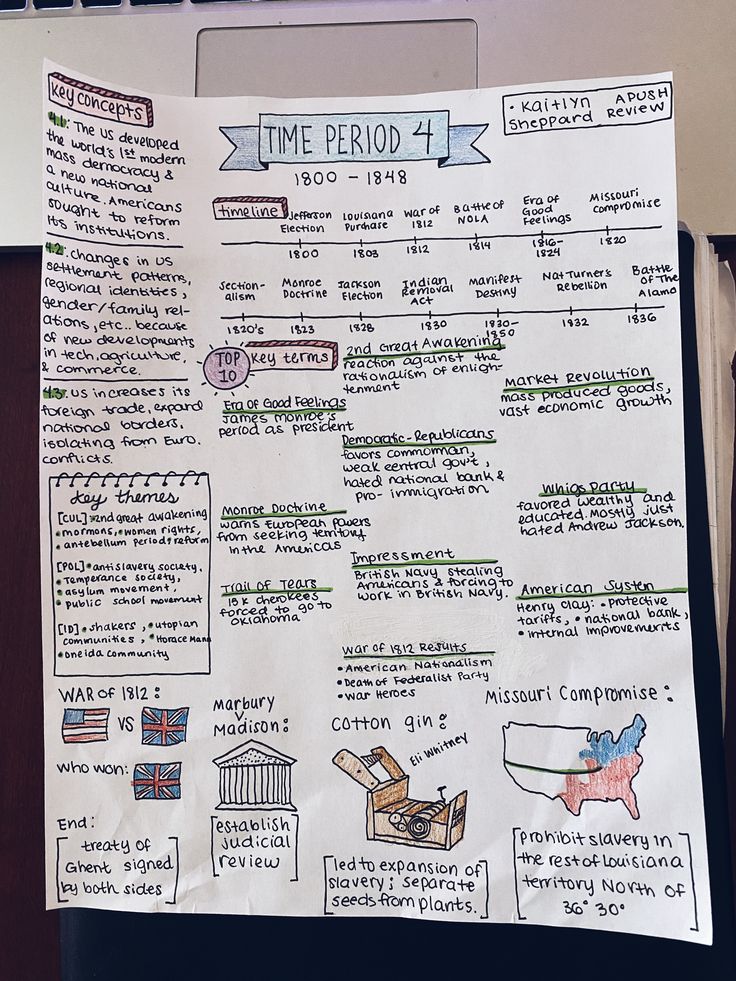 Key Concepts
4.1: The US developed
the world's 1st modern
mass democracy &
a new national
culture. Americans
sought to reform
its institutions.
4.2: changes in US
settlement patterns,
regional identities,
gender/family rel-
ations, etc.. because
of new developments
in tech, agriculture,
& commerce.
4.3: US increases its
foreign trade, expand
national borders,
isolating from Euro.
conflicts.
key themes
[CUL] • 2nd great awakening
• mormons, • women rights,
• antebellum period; reform
[POL] • antislavery society,
• Temperance society,
• asylum movement,
• public school movement
[ID] • shakers, • utopian
communities, • Horace Mann
• oneida community
TIME PERIOD 4
1800 - 1848
• Kaitlyn APUSH
Sheppard Review
timeline
Jefferson
Election
1800
Louisiana
Purchase
1803
War of
1812
1812
Battle of
NOLA
1814
Era of
Good
Feelings
1816-
1824
Missouri
Compromise
1820
Section-
alism
1820's
Monroe
Doctrine
1823
Jackson
Election
1828
Indian
Removal
Act
1830
Manifest
Destiny
1830-
1850
Nat Turner's
Rebellion
1832
Battle
of The
Alamo
1836
TOP
10
Key terms
Era of Good Feelings
James Monroe's
period as president
Monroe Doctrine
warns European powers
from seeking territory
in the Americas
Trail of Tears
15k cherokees
forced to go to
oklahoma
2nd Great Awakening
reaction against the
rationalism of enligh-
tenment
Democratic-Republicans
favors commorman,
weak central gov't,
hated national bank &
pro-immigration
Impressment
British Navy stealing
Americans & forcing to
work in British Navy.
War of 1812 Results
• American Nationalism
• Death of Federalist Party
• War Heroes
Market Revolution
mass produced goods,
vast economic growth
Whigs Party
favored wealthy and
educated. Mostly just
hated Andrew Jackson.
American System
Henry Clay: • Protective
tariffs, • national bank,
• internal improvements
WAR of 1812:
VS
who won:
End:
treaty of
Ghent signed
by both sides
Marbury
v
Madison:
establish
judicial
review
Cotton gin:
Eli Whitney
led to expansion of
slavery; separate
seeds from plants.
Missouri Compromise:
prohibit slavery in
the rest of Louisiana
territory North of
36° 30°